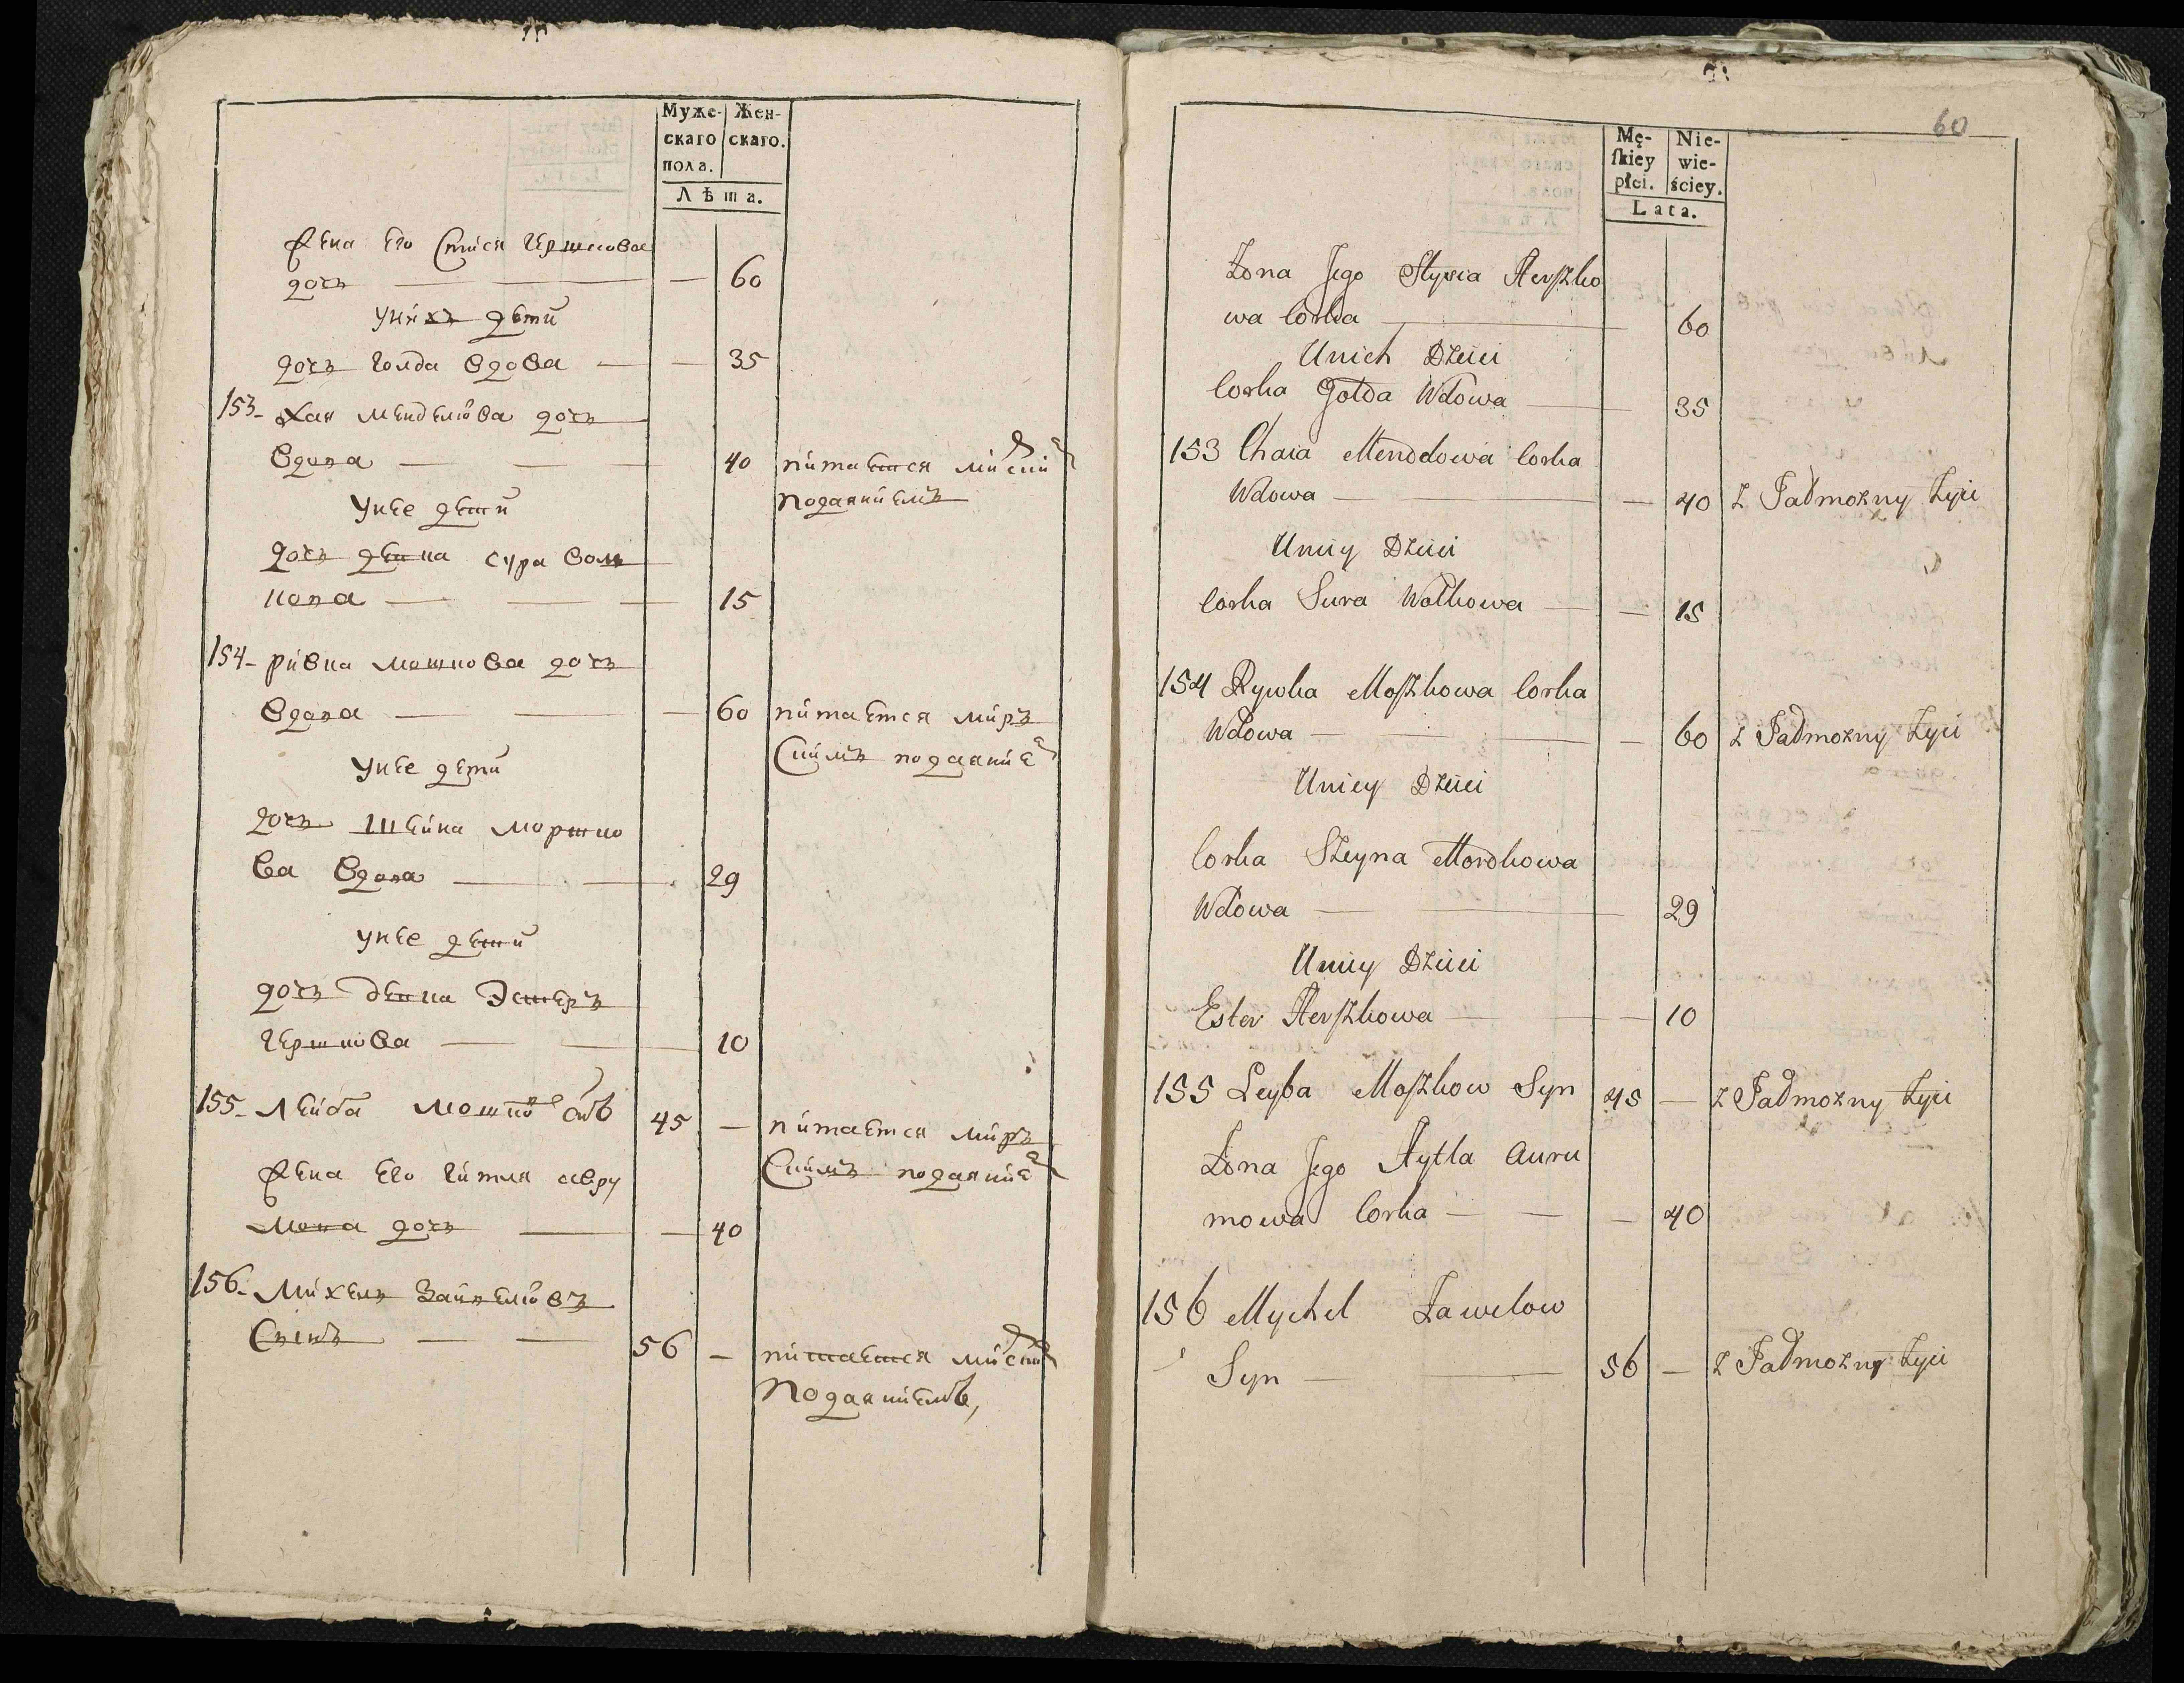 Муже-
скаго
пола.
Жен-
скаго.
Лѣта.
Жена Его Стися Гершкова
дочь — — — 60
У них дети
дочь Голда вдова — — 35
153 - Хая Менделiова дочь
вдова — — 40 питается мирский
подаянiемъ
У нее дети
дочь девка Сура Вол
кова — — — 15
154 - Ривка Мошкова дочь
вдова — — — 60 питается мирз
скимъ подаянiе
У нее дети
дочь Шейна Моршко
ва вдова — — 29
У нее дети
дочь девка Эстеръ
Гершкова — — 10
155 - Лейба Мошковъ снъ 45 — питается миръ
скимъ подаянiе
Жена Его Гитля Авру
мова дочь — — 40
156 - Михель Зайвелiовъ
Сынъ — — 56 — питается мирский
подаянiемъ,
60
Mę-
ſkiey
płci.
Nie-
wie-
ściey.
Lata.
Żona Jego Stysia Herszko
wa Corka — 60
Unich Dzieci
Corka Gołda Wdowa — 35
153 Chaia Mendelowa Corka
Wdowa — — 40 z Jadmożny żyie
Uniey Dzieci
Corka Sura Wolkowa — — 15
154 Rywka Moszkowa Corka
Wdowa — — — 60 z Jadmożny żyie
Uniey Dzieci
Corka Szeyna Mordkowa
Wdowa — — 29
Uniey Dzieci
Ester Herszkowa — — — 10
155 Leyba Moszkow Syn 45 — z Jadmożny żyie
Żona Jego Hytla Auru
mowa Corka — — — 40
156 Mychel Zawelow
Syn — — 56 — z Jadmożny żyie